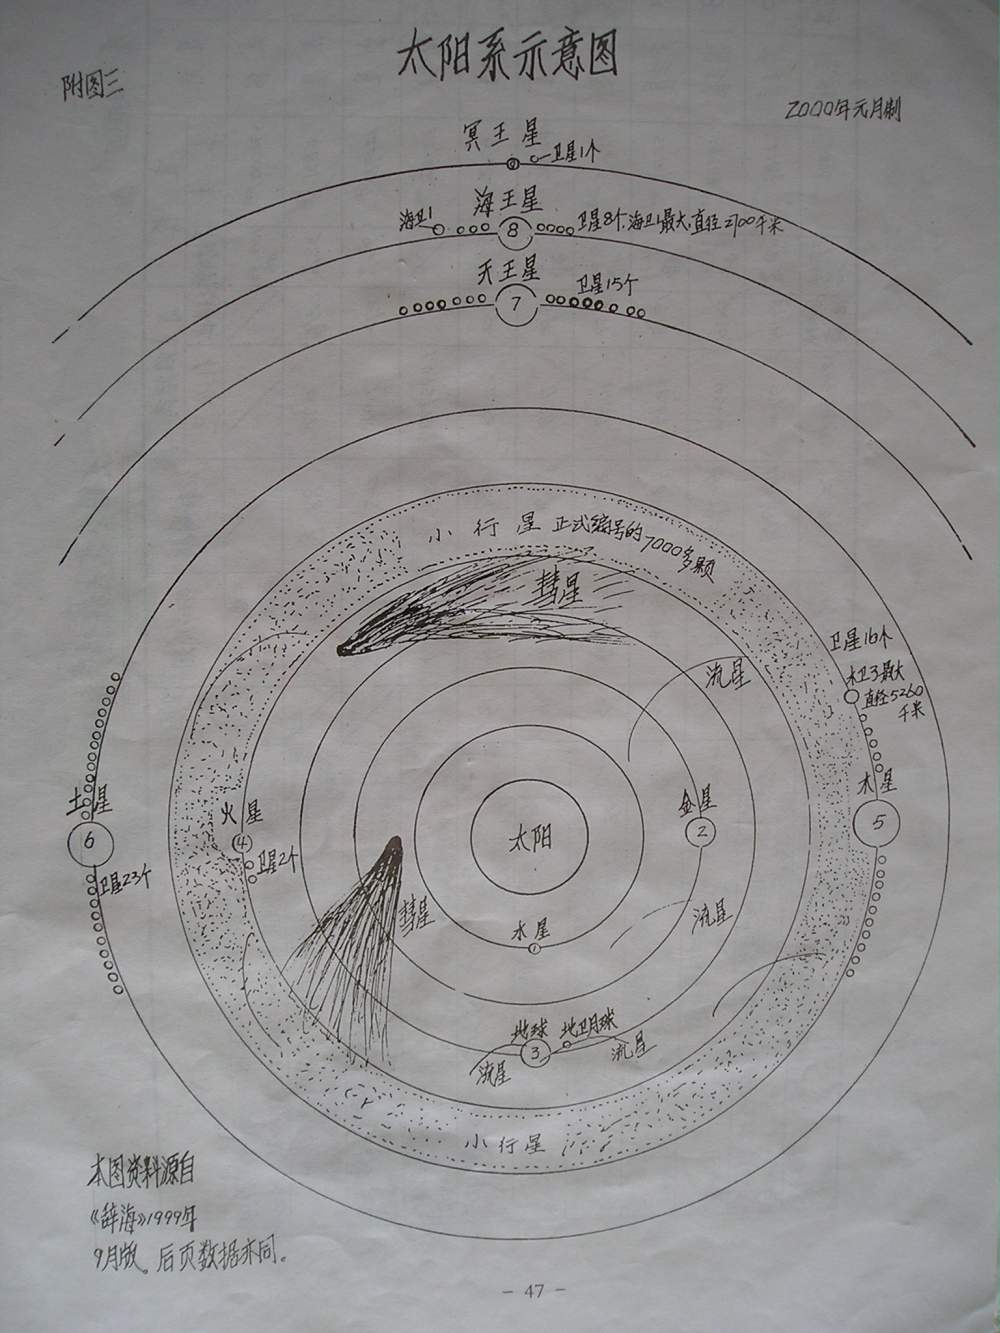 太阳系示意图
附图三
2000年元月制
冥王星
9
卫星1个
海王星
海卫1
8
卫星8个.海卫1最大.直径2700千米
天王星
7
卫星15个
小行星 正式编号的7000多颗
彗星
卫星16个
流星
木卫3最大
直径5260
千米
土星
火星
金星
木星
6
4
太阳
2
5
卫星23个
卫星2个
彗星
流星
水星
1
地球
地卫月球
3
流星
流星
小行星
本图资料源自
《辞海》1999年
9月版。后页数据亦同。
- 47 -